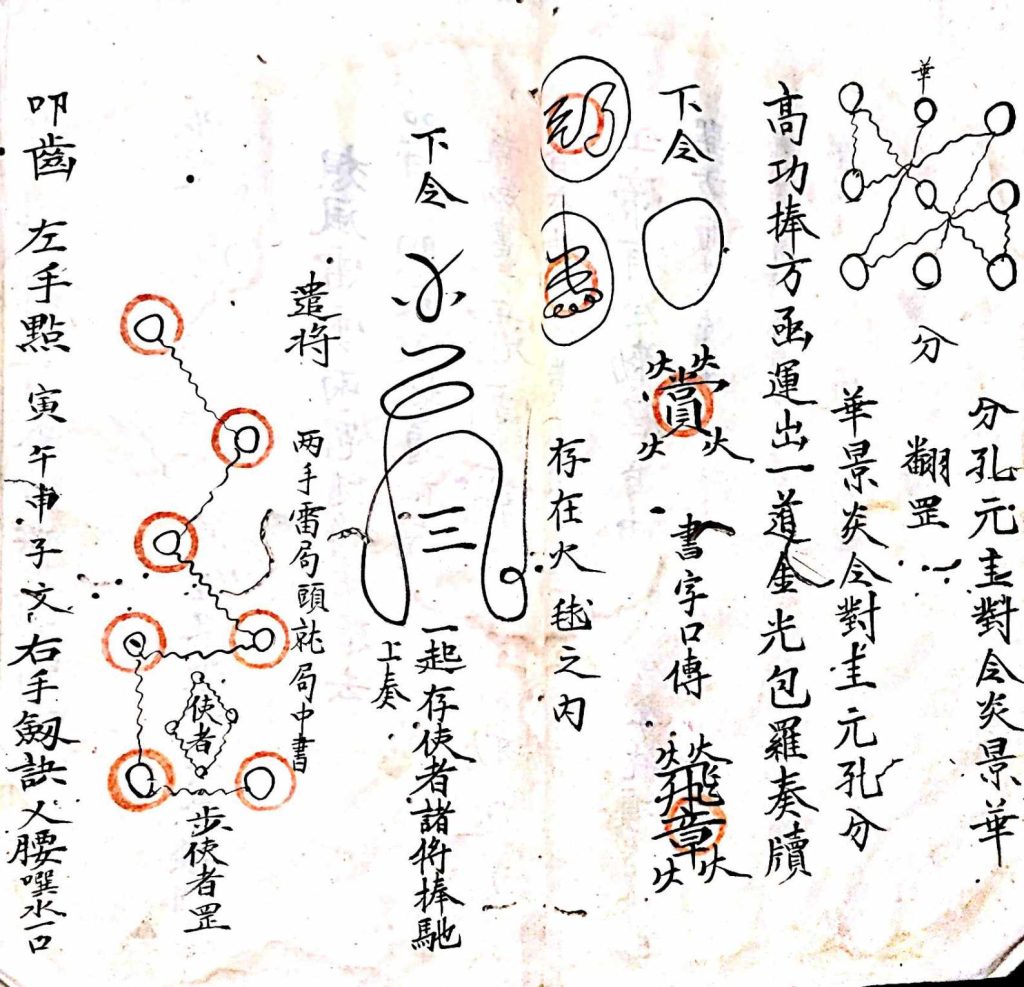 華
分
分孔元圭對令炎景華
翻罡
華景炎令對圭元孔分
高功捧方函運出一道金光包羅奏牘
下令
火火賞火火
書字口傳
火火飛章火火
存在火毬之內
下令
三
一起存使者諸将捧馳
上奏
遣将
两手雷局頭就局中書
使者
步使者罡
叩齒 左手點 寅午申子文 右手劔訣入腰噀水一口